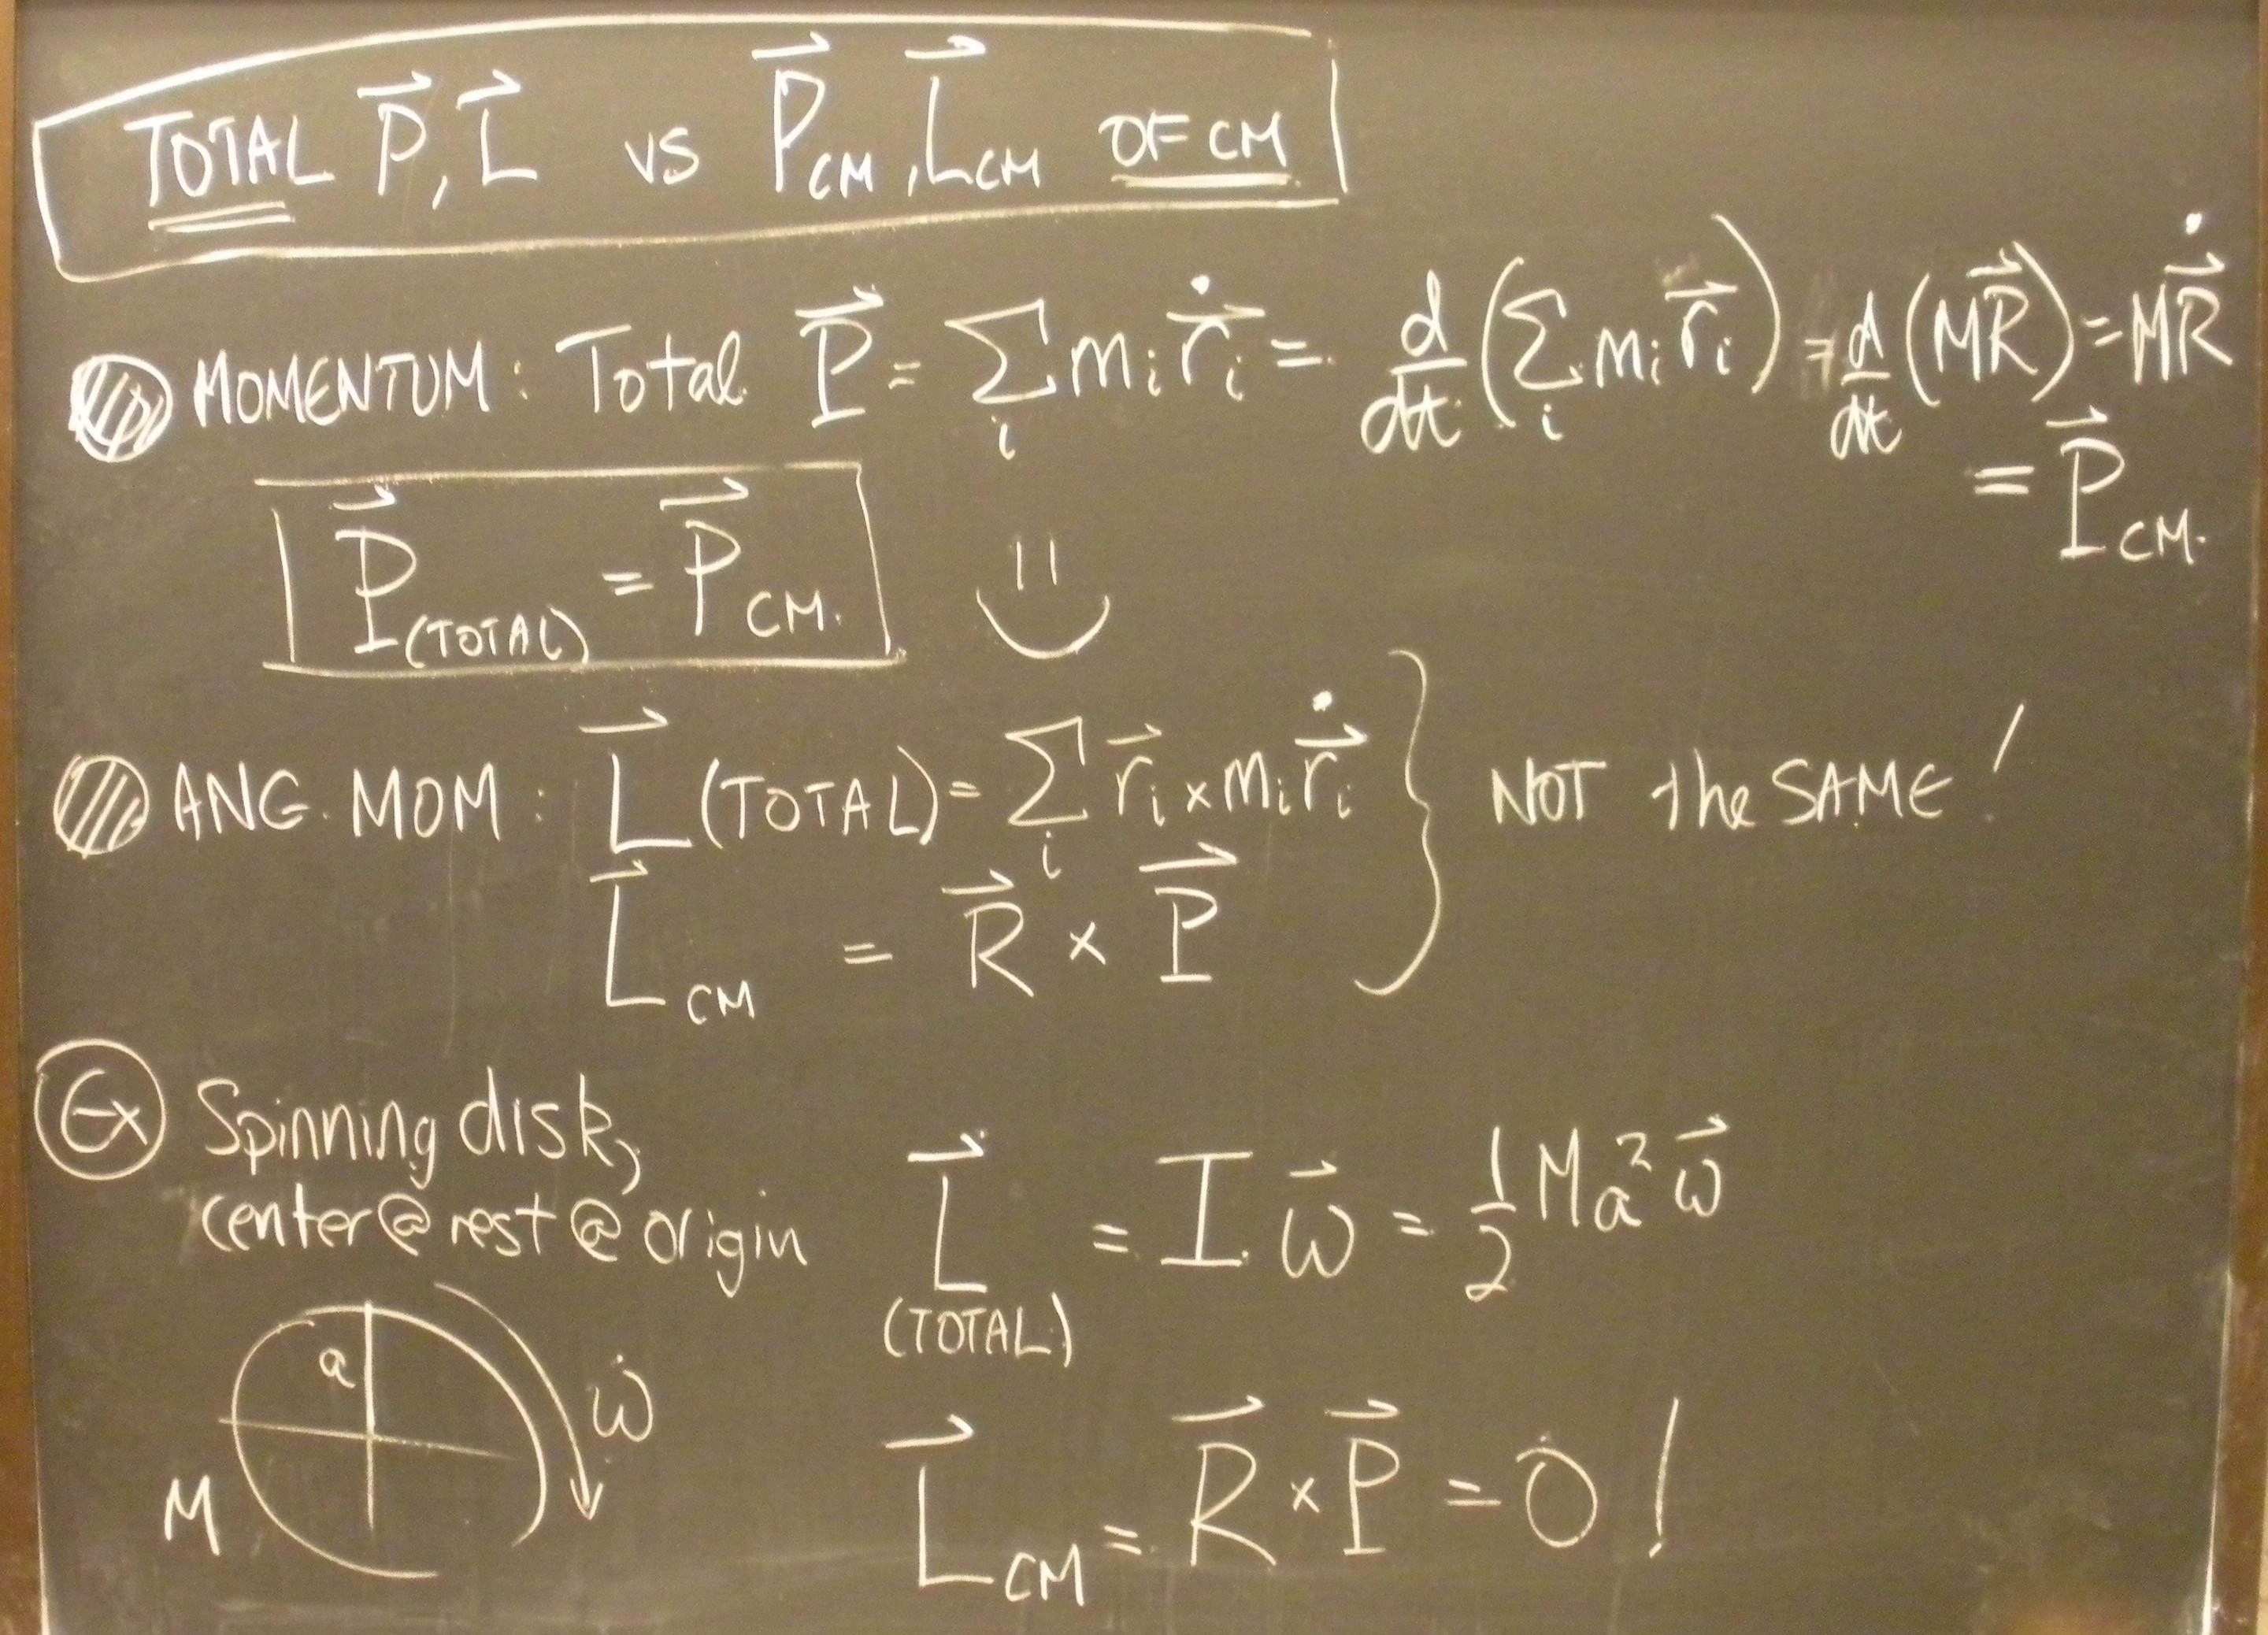 TOTAL P⃗, L⃗ vs P⃗_CM, L⃗_CM OF CM
MOMENTUM: Total P⃗ = Σ_i m_i ṙ⃗_i = d/dt (Σ_i m_i r⃗_i) = d/dt (MR⃗) = MṘ⃗
= P⃗_CM.
P⃗_(TOTAL) = P⃗_CM.
ANG. MOM: L⃗ (TOTAL) = Σ_i r⃗_i × m_i ṙ⃗_i
NOT the SAME!
L⃗_CM = R⃗ × P⃗
Ex Spinning disk,
center @ rest @ origin
L⃗_(TOTAL) = I ω⃗ = 1/2 Ma² ω⃗
a
ω
M
L⃗_CM = R⃗ × P⃗ = 0!